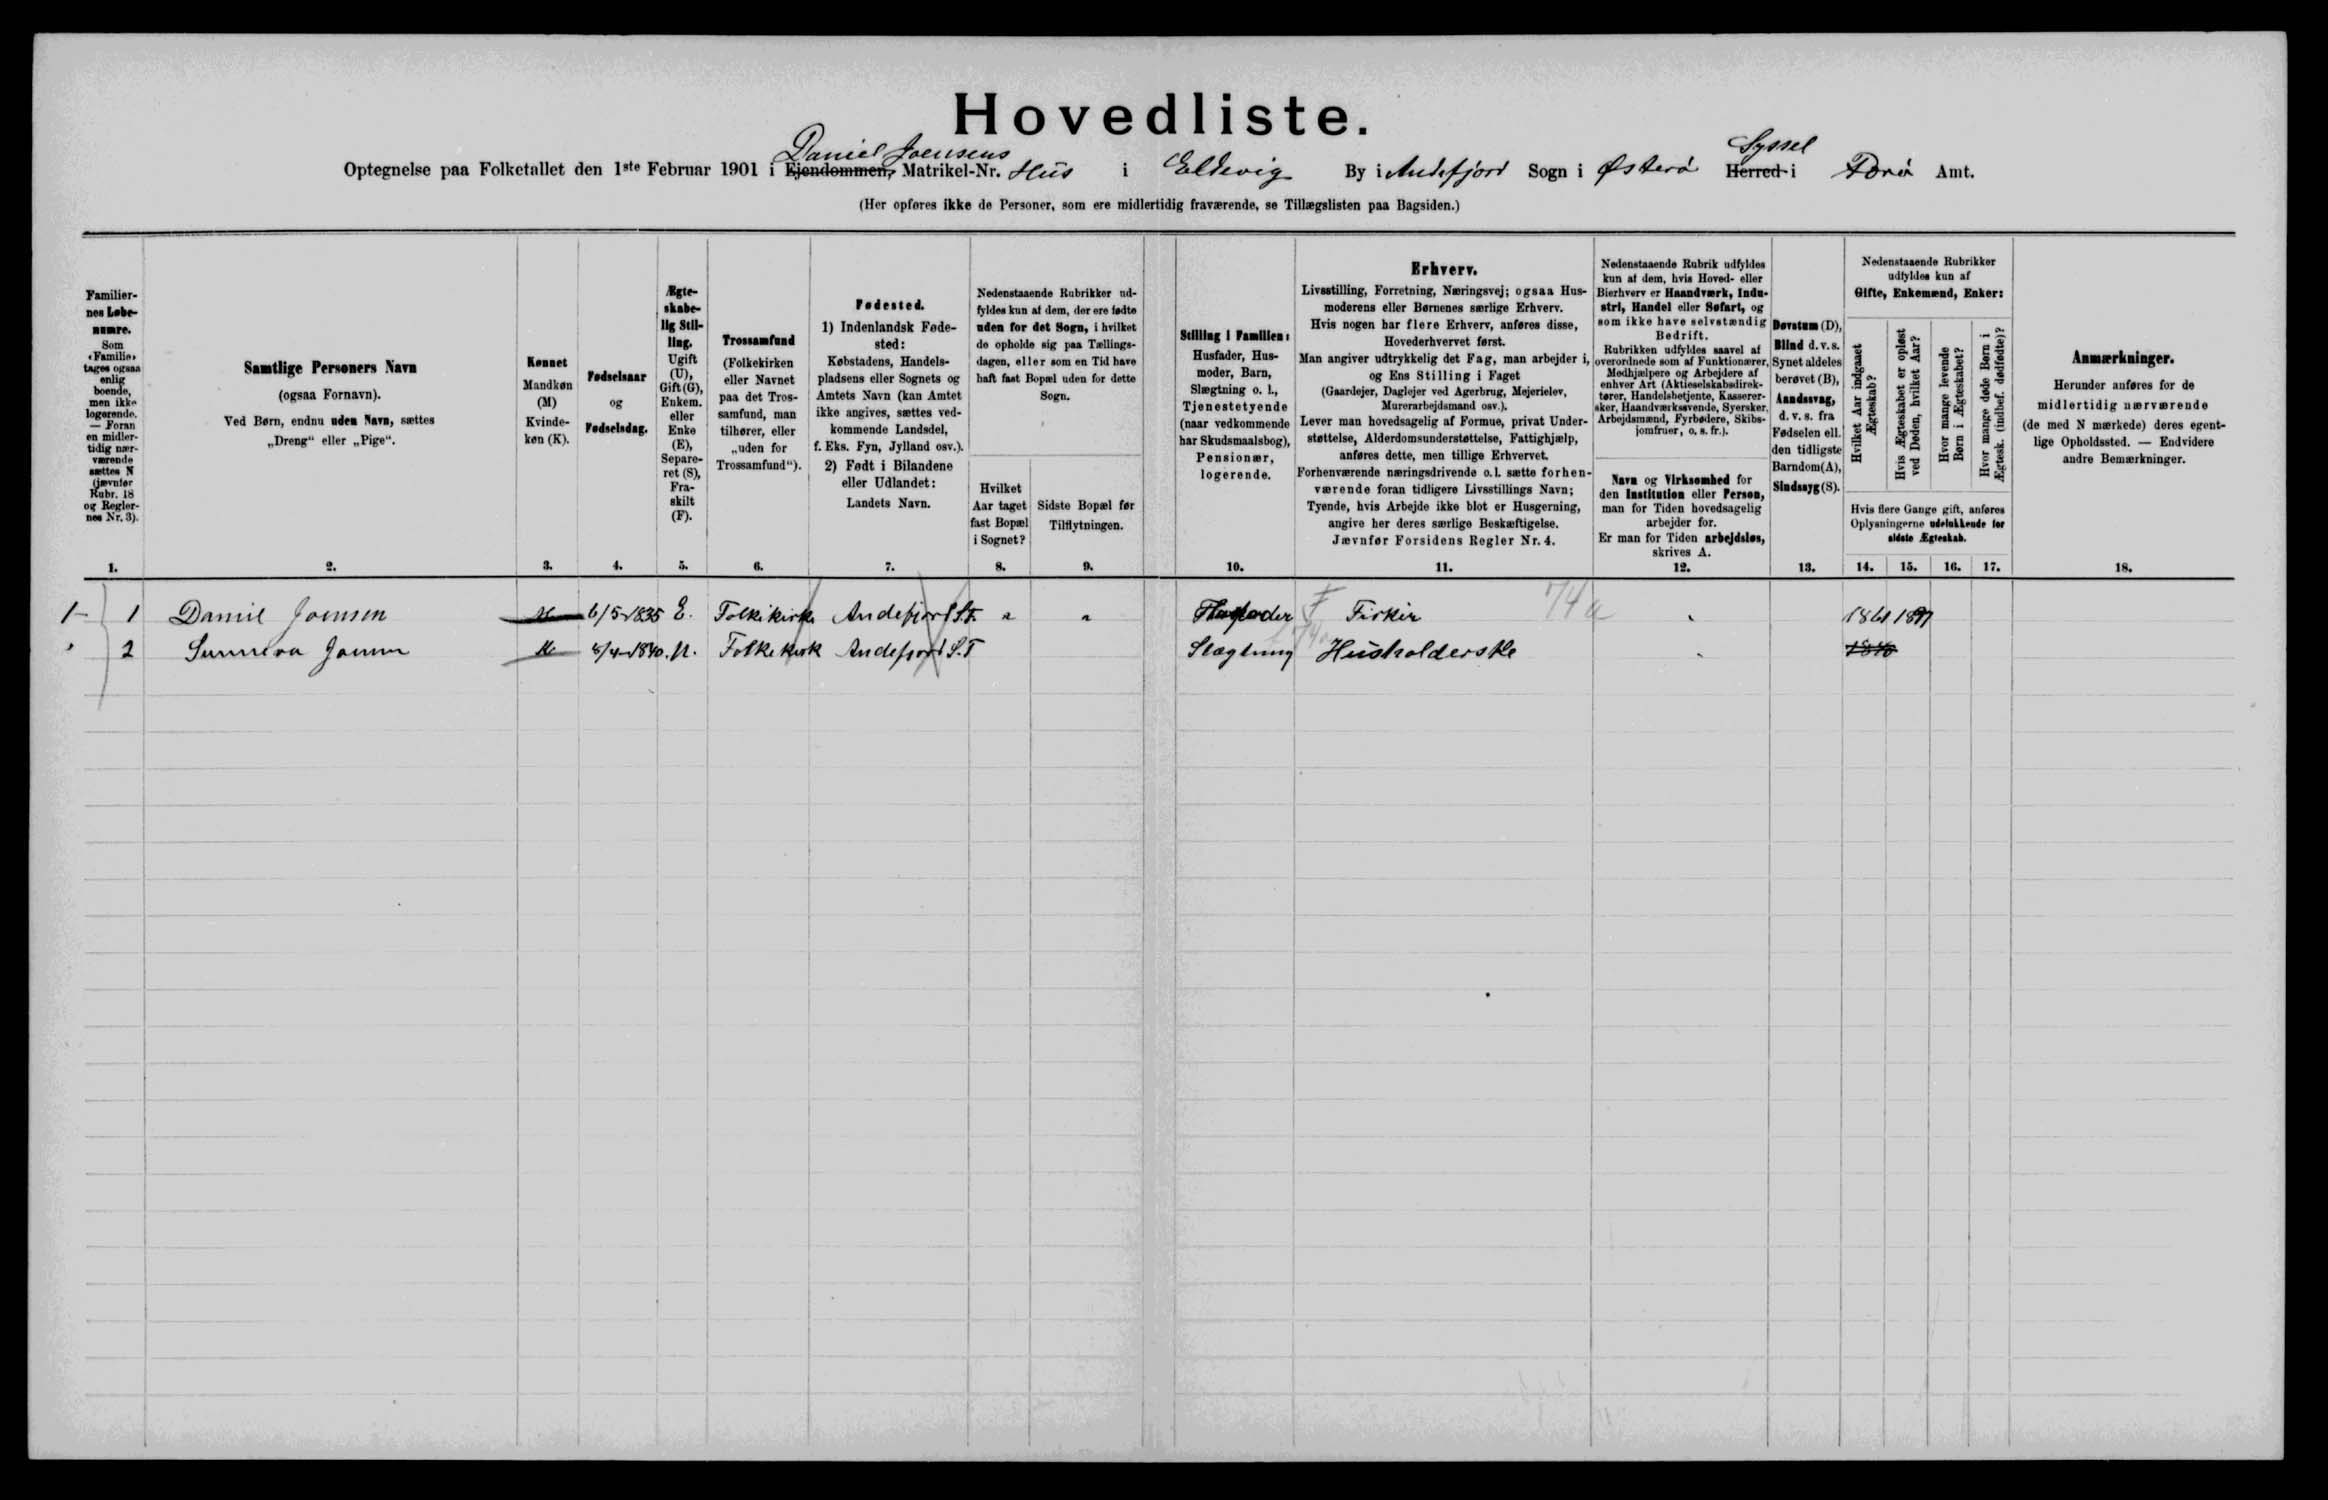 Hovedliste.
Daniel Joensens
Syssel
Optegnelse paa Folketallet den 1ste Februar 1901 i Ejendommen, Matrikel-Nr. Hus i Eldevig By i Andefjord Sogn i Østerø Herred i Færø Amt.
(Her opføres ikke de Personer, som ere midlertidig fraværende, se Tillægslisten paa Bagsiden.)
Familier-
nes Løbe-
numre.
Som
«Familie»
tages ogsaa
enlig
boende,
men ikke
logerende.
— Foran
en midler-
tidig nær-
værende
sættes N
(jævnfør
Rubr. 18
og Regler-
nes Nr. 3).
Samtlige Personers Navn
(ogsaa Fornavn).
Ved Børn, endnu uden Navn, sættes
„Dreng" eller „Pige".
Kønnet
Mandkøn
(M)
Kvinde-
køn (K).
Fødselsaar
og
Fødselsdag.
Ægte-
skabe-
lig Stil-
ling.
Ugift
(U),
Gift (G),
Enkem.
eller
Enke
(E),
Separe-
ret (S),
Fra-
skilt
(F).
Trossamfund
(Folkekirken
eller Navnet
paa det Tros-
samfund, man
tilhører, eller
„uden for
Trossamfund").
Fødested.
1) Indenlandsk Føde-
sted:
Købstadens, Handels-
pladsens eller Sognets og
Amtets Navn (kan Amtet
ikke angives, sættes ved-
kommende Landsdel,
f. Eks. Fyn, Jylland osv.).
2) Født i Bilandene
eller Udlandet:
Landets Navn.
Nedenstaaende Rubrikker ud-
fyldes kun af dem, der ere fødte
uden for det Sogn, i hvilket
de opholde sig paa Tællings-
dagen, eller som en Tid have
haft fast Bopæl uden for dette
Sogn.
Hvilket
Aar taget
fast Bopæl
i Sognet?
Sidste Bopæl før
Tilflytningen.
Stilling i Familien:
Husfader, Hus-
moder, Barn,
Slægtning o. l.,
Tjenestetyende
(naar vedkommende
har Skudsmaalsbog),
Pensionær,
logerende.
Erhverv.
Livsstilling, Forretning, Næringsvej; ogsaa Hus-
moderens eller Børnenes særlige Erhverv.
Hvis nogen har flere Erhverv, anføres disse,
Hovederhvervet først.
Man angiver udtrykkelig det Fag, man arbejder i,
og Ens Stilling i Faget
(Gaardejer, Daglejer ved Agerbrug, Mejerielev,
Murerarbejdsmand osv.).
Lever man hovedsagelig af Formue, privat Under-
støttelse, Alderdomsunderstøttelse, Fattighjælp,
anføres dette, men tillige Erhvervet.
Forhenværende næringsdrivende o. l. sætte forhen-
værende foran tidligere Livsstillings Navn;
Tyende, hvis Arbejde ikke blot er Husgerning,
angive her deres særlige Beskæftigelse.
Jævnfør Forsidens Regler Nr. 4.
Nedenstaaende Rubrik udfyldes
kun af dem, hvis Hoved- eller
Bierhverv er Haandværk, Indu-
stri, Handel eller Søfart, og
som ikke have selvstændig
Bedrift.
Rubrikken udfyldes saavel af
overordnede som af Funktionærer,
Medhjælpere og Arbejdere af
enhver Art (Aktieselskabsdirek-
tører, Handelsbetjente, Kasserer-
sker, Haandværkssvende, Syersker,
Arbejdsmænd, Fyrbødere, Skibs-
jomfruer, o. s. fr.).
Navn og Virksomhed for
den Institution eller Person,
man for Tiden hovedsagelig
arbejder for.
Er man for Tiden arbejdsløs,
skrives A.
Døvstum (D),
Blind d. v. s.
Synet aldeles
berøvet (B),
Aandssvag,
d. v. s. fra
Fødselen ell.
den tidligste
Barndom (A),
Sindssyg (S).
Nedenstaaende Rubrikker
udfyldes kun af
Gifte, Enkemænd, Enker:
Hvilket Aar indgaaet
Ægteskab?
Hvis Ægteskabet er opløst
ved Døden, hvilket Aar?
Hvor mange levende
Børn i Ægteskabet?
Hvor mange døde Børn i
Ægtesk. (indbef. dødfødte)?
Hvis flere Gange gift, anføres
Oplysningerne udelukkende for
sidste Ægteskab.
Anmærkninger.
Herunder anføres for de
midlertidig nærværende
(de med N mærkede) deres egent-
lige Opholdssted. — Endvidere
andre Bemærkninger.
1. 2. 3. 4. 5. 6. 7. 8. 9. 10. 11. 12. 13. 14. 15. 16. 17. 18.
1 1 Daniel Joensen M 6/5 1835 E. Folkekirke Andefjord S.F. " " Husfader F Fisker 74a 1861
2 Sunneva Joensen 8/4 1840. U. Folkekirk Andefjord S.F Slægtning Husholderske